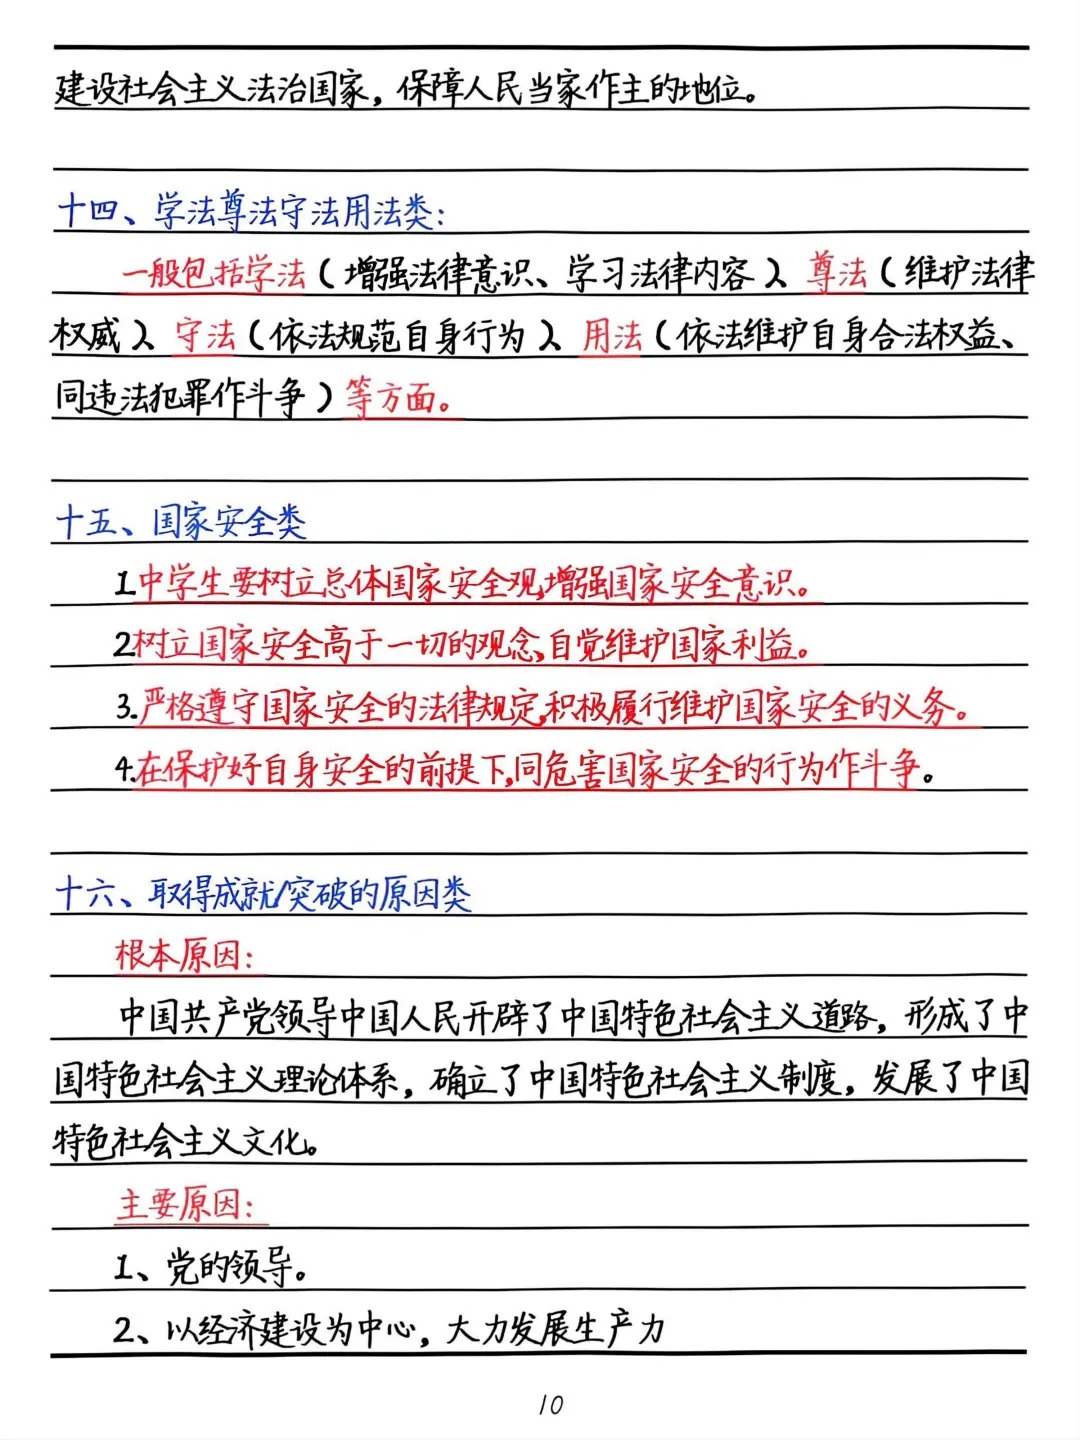 建设社会主义法治国家，保障人民当家作主的地位。
十四、学法尊法守法用法类：
一般包括学法（增强法律意识、学习法律内容）、尊法（维护法律
权威）、守法（依法规范自身行为）、用法（依法维护自身合法权益、
同违法犯罪作斗争）等方面。
十五、国家安全类
1.中学生要树立总体国家安全观,增强国家安全意识。
2.树立国家安全高于一切的观念,自觉维护国家利益。
3.严格遵守国家安全的法律规定,积极履行维护国家安全的义务。
4.在保护好自身安全的前提下,同危害国家安全的行为作斗争。
十六、取得成就/突破的原因类
根本原因：
中国共产党领导中国人民开辟了中国特色社会主义道路，形成了中
国特色社会主义理论体系，确立了中国特色社会主义制度，发展了中国
特色社会主义文化。
主要原因：
1、党的领导。
2、以经济建设为中心，大力发展生产力
10